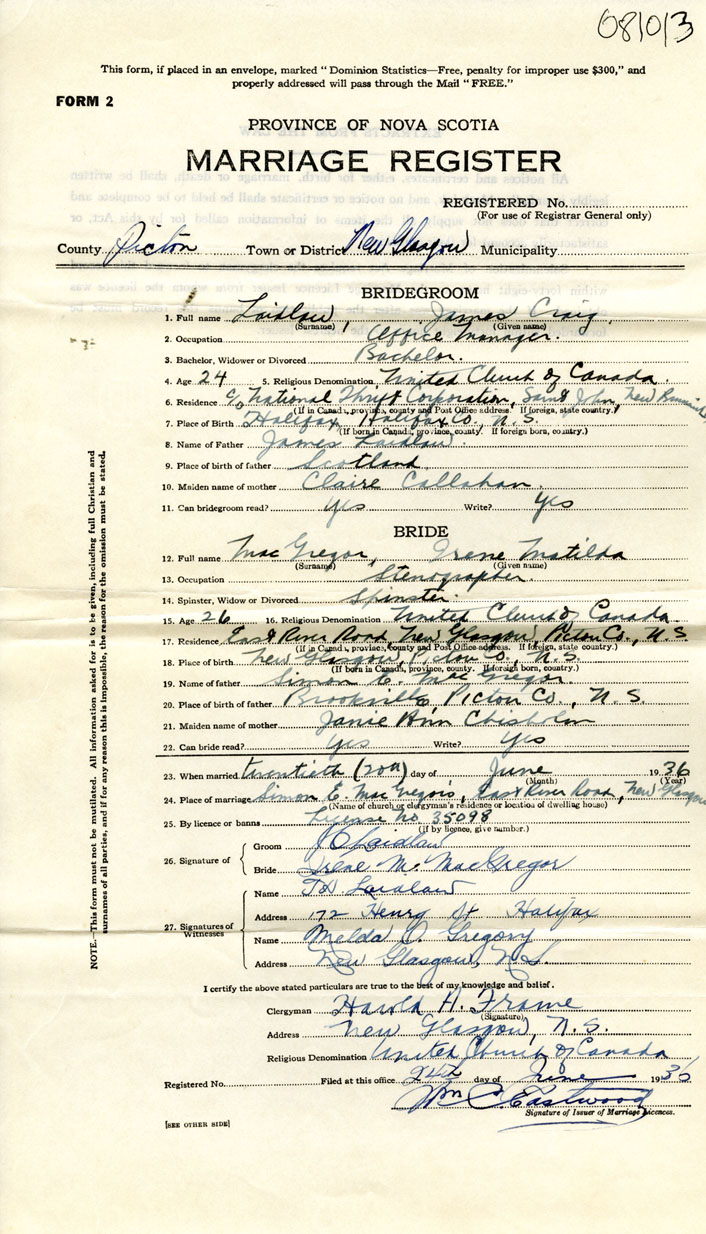 081013
This form, if placed in an envelope, marked "Dominion Statistics—Free, penalty for improper use $300," and
properly addressed will pass through the Mail "FREE."
FORM 2
PROVINCE OF NOVA SCOTIA
MARRIAGE REGISTER
REGISTERED No.
(For use of Registrar General only)
County Pictou Town or District New Glasgow Municipality
BRIDEGROOM
1. Full name Laidlaw, James Craig,
(Surname) (Given name)
2. Occupation Office Manager.
3. Bachelor, Widower or Divorced Bachelor.
4. Age 24 5. Religious Denomination United Church of Canada.
6. Residence c/o National Thrift Corporation, Saint John, New Brunswick
(If in Canada, province, county and Post Office address. If foreign, state country.)
7. Place of Birth Halifax, Halifax Co., N.S.
(If born in Canada, province, county. If foreign born, country.)
8. Name of Father James Laidlaw.
9. Place of birth of father Scotland
10. Maiden name of mother Claire Callahan.
11. Can bridegroom read? Yes Write? Yes
BRIDE
12. Full name MacGregor, Irene Matilda
(Surname) (Given name)
13. Occupation Stenographer.
14. Spinster, Widow or Divorced Spinster.
15. Age 26 16. Religious Denomination United Church of Canada
17. Residence East River Road, New Glasgow, Pictou Co., N.S.
(If in Canada, province, county and Post Office address. If foreign, state country.)
18. Place of birth New Glasgow, Pictou Co., N.S.
(If born in Canada, province, county. If foreign born, country.)
19. Name of father Simon E. MacGregor
20. Place of birth of father Brookville, Pictou Co., N.S.
21. Maiden name of mother Janie Ann Chisholm
22. Can bride read? Yes Write? Yes
23. When married twentieth (20th) day of June 1936
(Month) (Year)
24. Place of marriage Simon E. MacGregor's, East River Road, New Glasgow
(Name of church or clergyman's residence or location of dwelling house)
25. By licence or banns License No 35098
(if by licence, give number.)
26. Signature of Groom J C Laidlaw
Bride Irene M. MacGregor
27. Signatures of Witnesses Name Laidlaw
Address 172 Henry St Halifax
Name Melda Gregory
Address New Glasgow, N.S.
I certify the above stated particulars are true to the best of my knowledge and belief.
Clergyman Harold A. Frame
(Signature)
Address New Glasgow, N.S.
Religious Denomination United Church of Canada
Registered No. Filed at this office 24th day of June 1936
Wm C. Eastwood
Signature of Issuer of Marriage Licences.
[SEE OTHER SIDE]
NOTE.—This form must not be mutilated. All information asked for is to be given, including full Christian and
surnames of all parties, and if for any reason this is impossible, the reason for the omission must be stated.